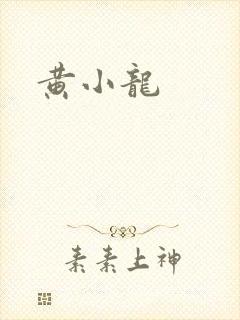 黄小龍
素素上神